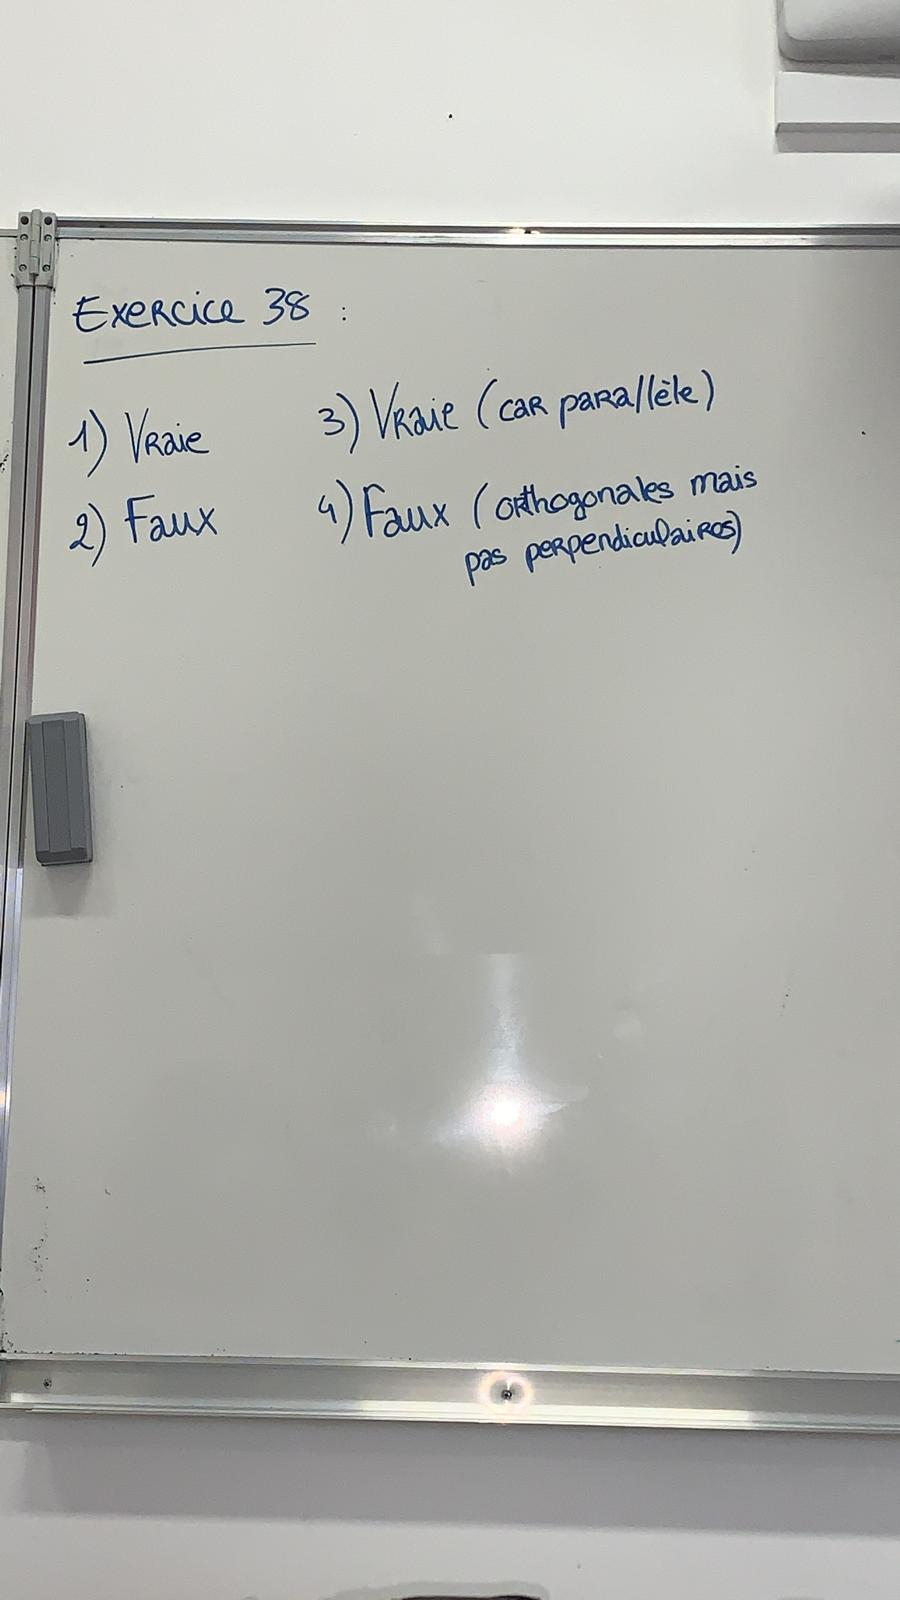 Exercice 38 :
1) Vraie
2) Faux
3) Vraie (car parallèle)
4) Faux (orthogonales mais
pas perpendiculaires)